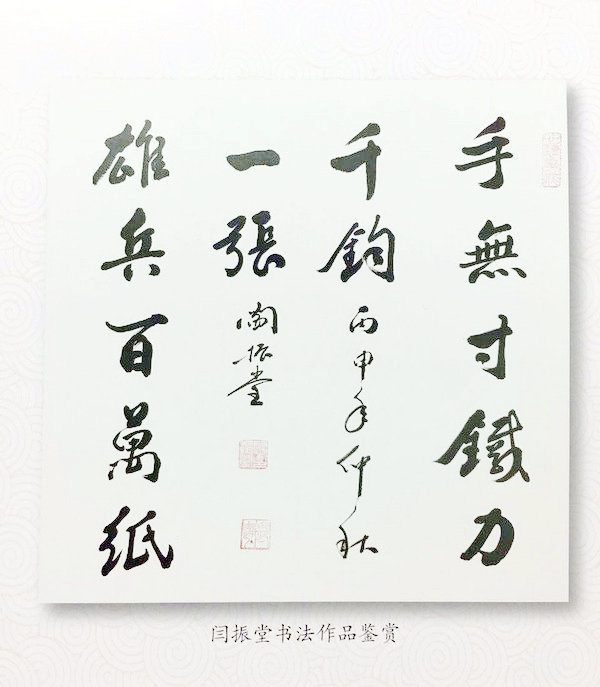 手無寸鐵力
千鈞
丙申年仲秋
雄兵百萬紙
一張
閆振堂
闫振堂书法作品鉴赏